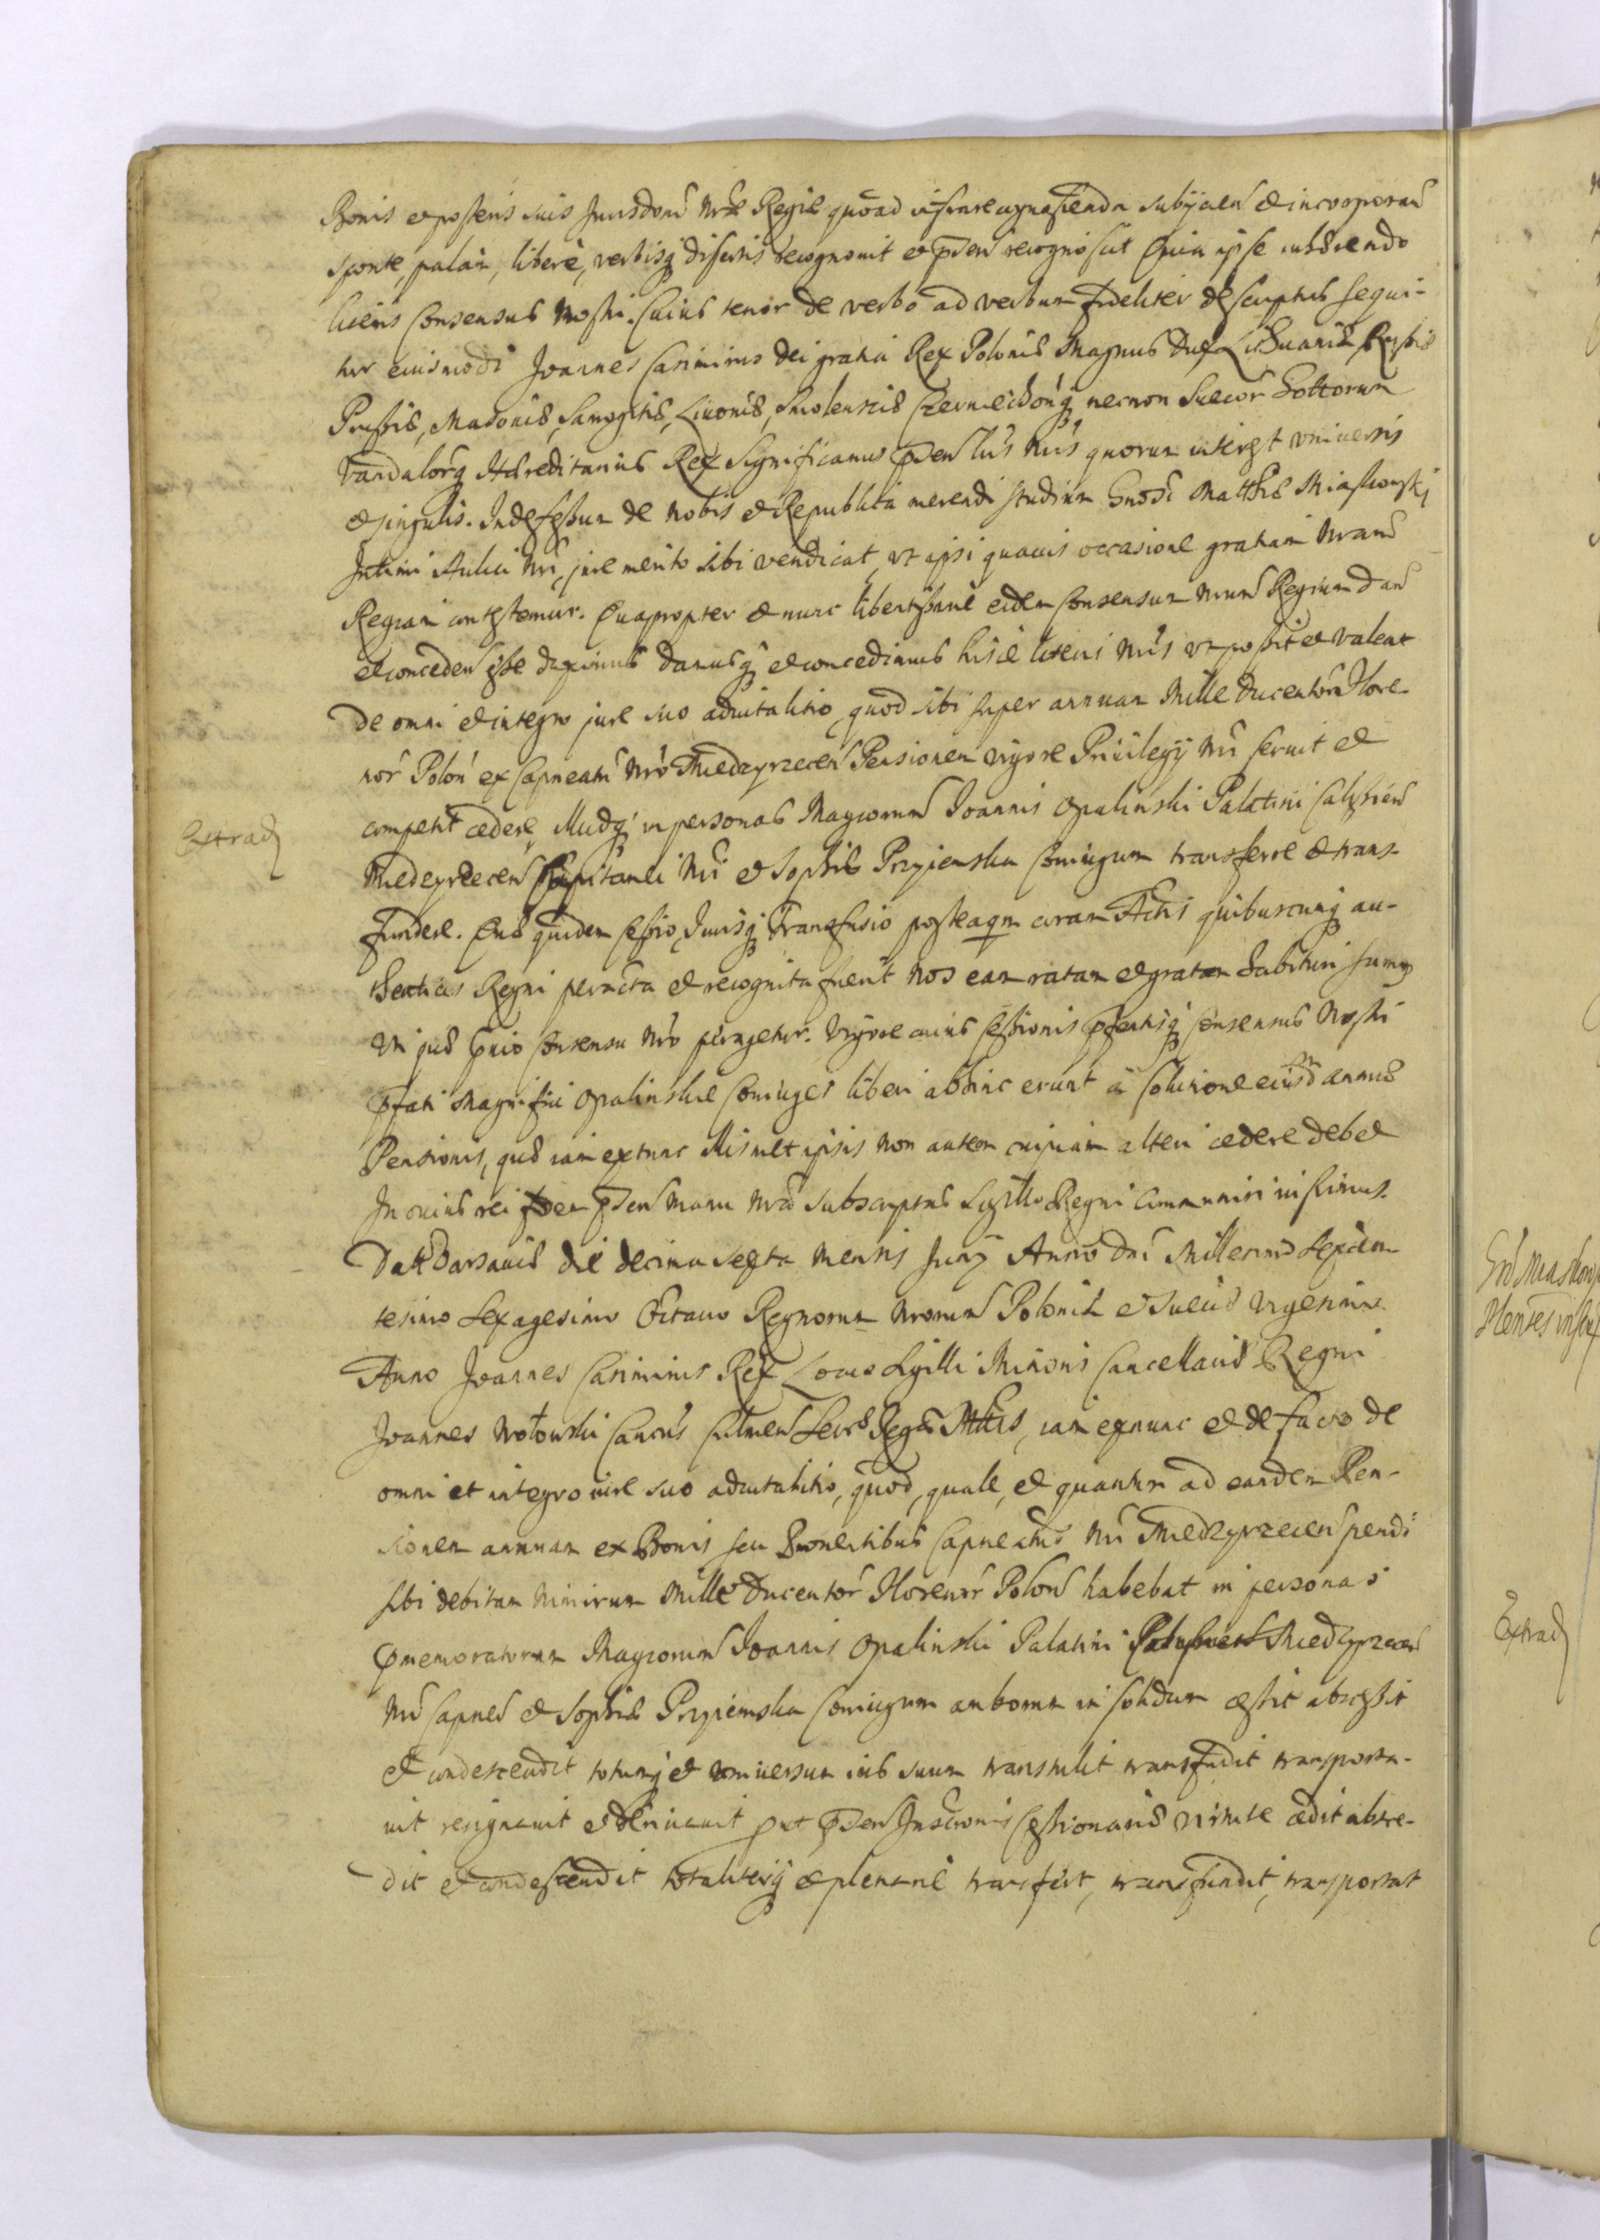 Bonis et posteris suis Jurisdoni Nrae Regiae quoad infrarecognascenda subijcien et incorporan
sponte, palam, libere, verbisq disertis recognovit et pnten recognoscit Quia ipse inhaerendo
literis Consensus Nostri. Cuius tenor de verbo ad verbum fideliter descriptus sequi-
tur eiusmodi Joannes Casimirus Dei gratia Rex Poloniae Magnus Dux Lithuaniae Russiae
Prussiae, Masoviae, Samogitiae, Livoniae, Smolensciae Czerniechoviaeq necnon Suecor Gottorum
Vandalorq Haereditarius Rex Significamus pnten Lris Nris quorum interest universis
et singulis. Indefessum de Nobis et Republica merendi studium Gnosi Matthiae Miaskowskj
Intimi Aulici Nri, jure merito sibi vendicat, ut ipsi quavis occasione gratiam Nram
Regiam contestemur. Quapropter et nunc libentissime eidem Consensum Nrum Regium dan
et conceden esse duximus Damusq et concedimus hisce literis Nris ut possit et valeat
de omni et integro jure suo advitalitio, quod sibi super annuam Mille Ducentor Flore-
nor Polon ex Capneatu Nro Miedzyrzecen Pensionem vigore Privilegij Nri servit et
competit cedere, Illudq in personas Magcorum Joannis Opalinski Palatini Calissien
Extrad
Miedzyrzecen Capitanei Nri et Sophiae Przyiemska Coniugum transferre et trans-
fundere. Quae quidem Cessio, Jurisq Transfusio posteaqm coram Actis quibuscunq au-
thenticis Regni peracta et recognita fuerit Nos eam ratam et gratam habituri sumus
Uti jus quio Consensu Nro peragetur. Vigore cuius Cessionis pntisq Consensus Nostri
pfati Magnifici Opalinskie Coniuges liberi abhinc erunt a Solutione eiusdm annuae
Pensionis, quae iam extunc illismet ipsis non autem cuipiam alteri cedere debet
In cuius rei fidem pnten Manu Nra subscriptas Sigillo Regni Communiri iussimus.
Datt Varsaviae die decima sexta Mensis Junij Anno Dni Millesimo Sexcen-
tesimo Sexagesimo Octavo Regnorum Nrorum Poloniae et Sueciae Vigesimo
Anno Joannes Casimirus Rex Locus Sigilli Minoris Cancellariae Regni
Joannes Wotowski Cancus Culmen Secrs Regae Mttis, iam exnunc et de facto de
omni et integro iure suo advitalitio, quod, quale, et quantum ad eandem Pen-
sionem annuam ex Bonis seu Proventibus Capneatus Nri Miedzyrzecen pendi
sibi debitam Nimirum Mille Ducentor Florenor Polon habebat in personas
pmemoratorum Magcorum Joannis Opalinski Palatini Miedzyrzecen
Nri Capnei et Sophiae Przyiemska Coniugum amborum in solidum cessit abscessit
et condescendit totumq et universum ius suum transtulit transfudit transporta-
vit resignavit et derivavit put pnten Inscronis Cessionariae virtute cedit absce-
dit et condescendit totaliterq et plenarie transfert, transfundit, transportat
Extrad